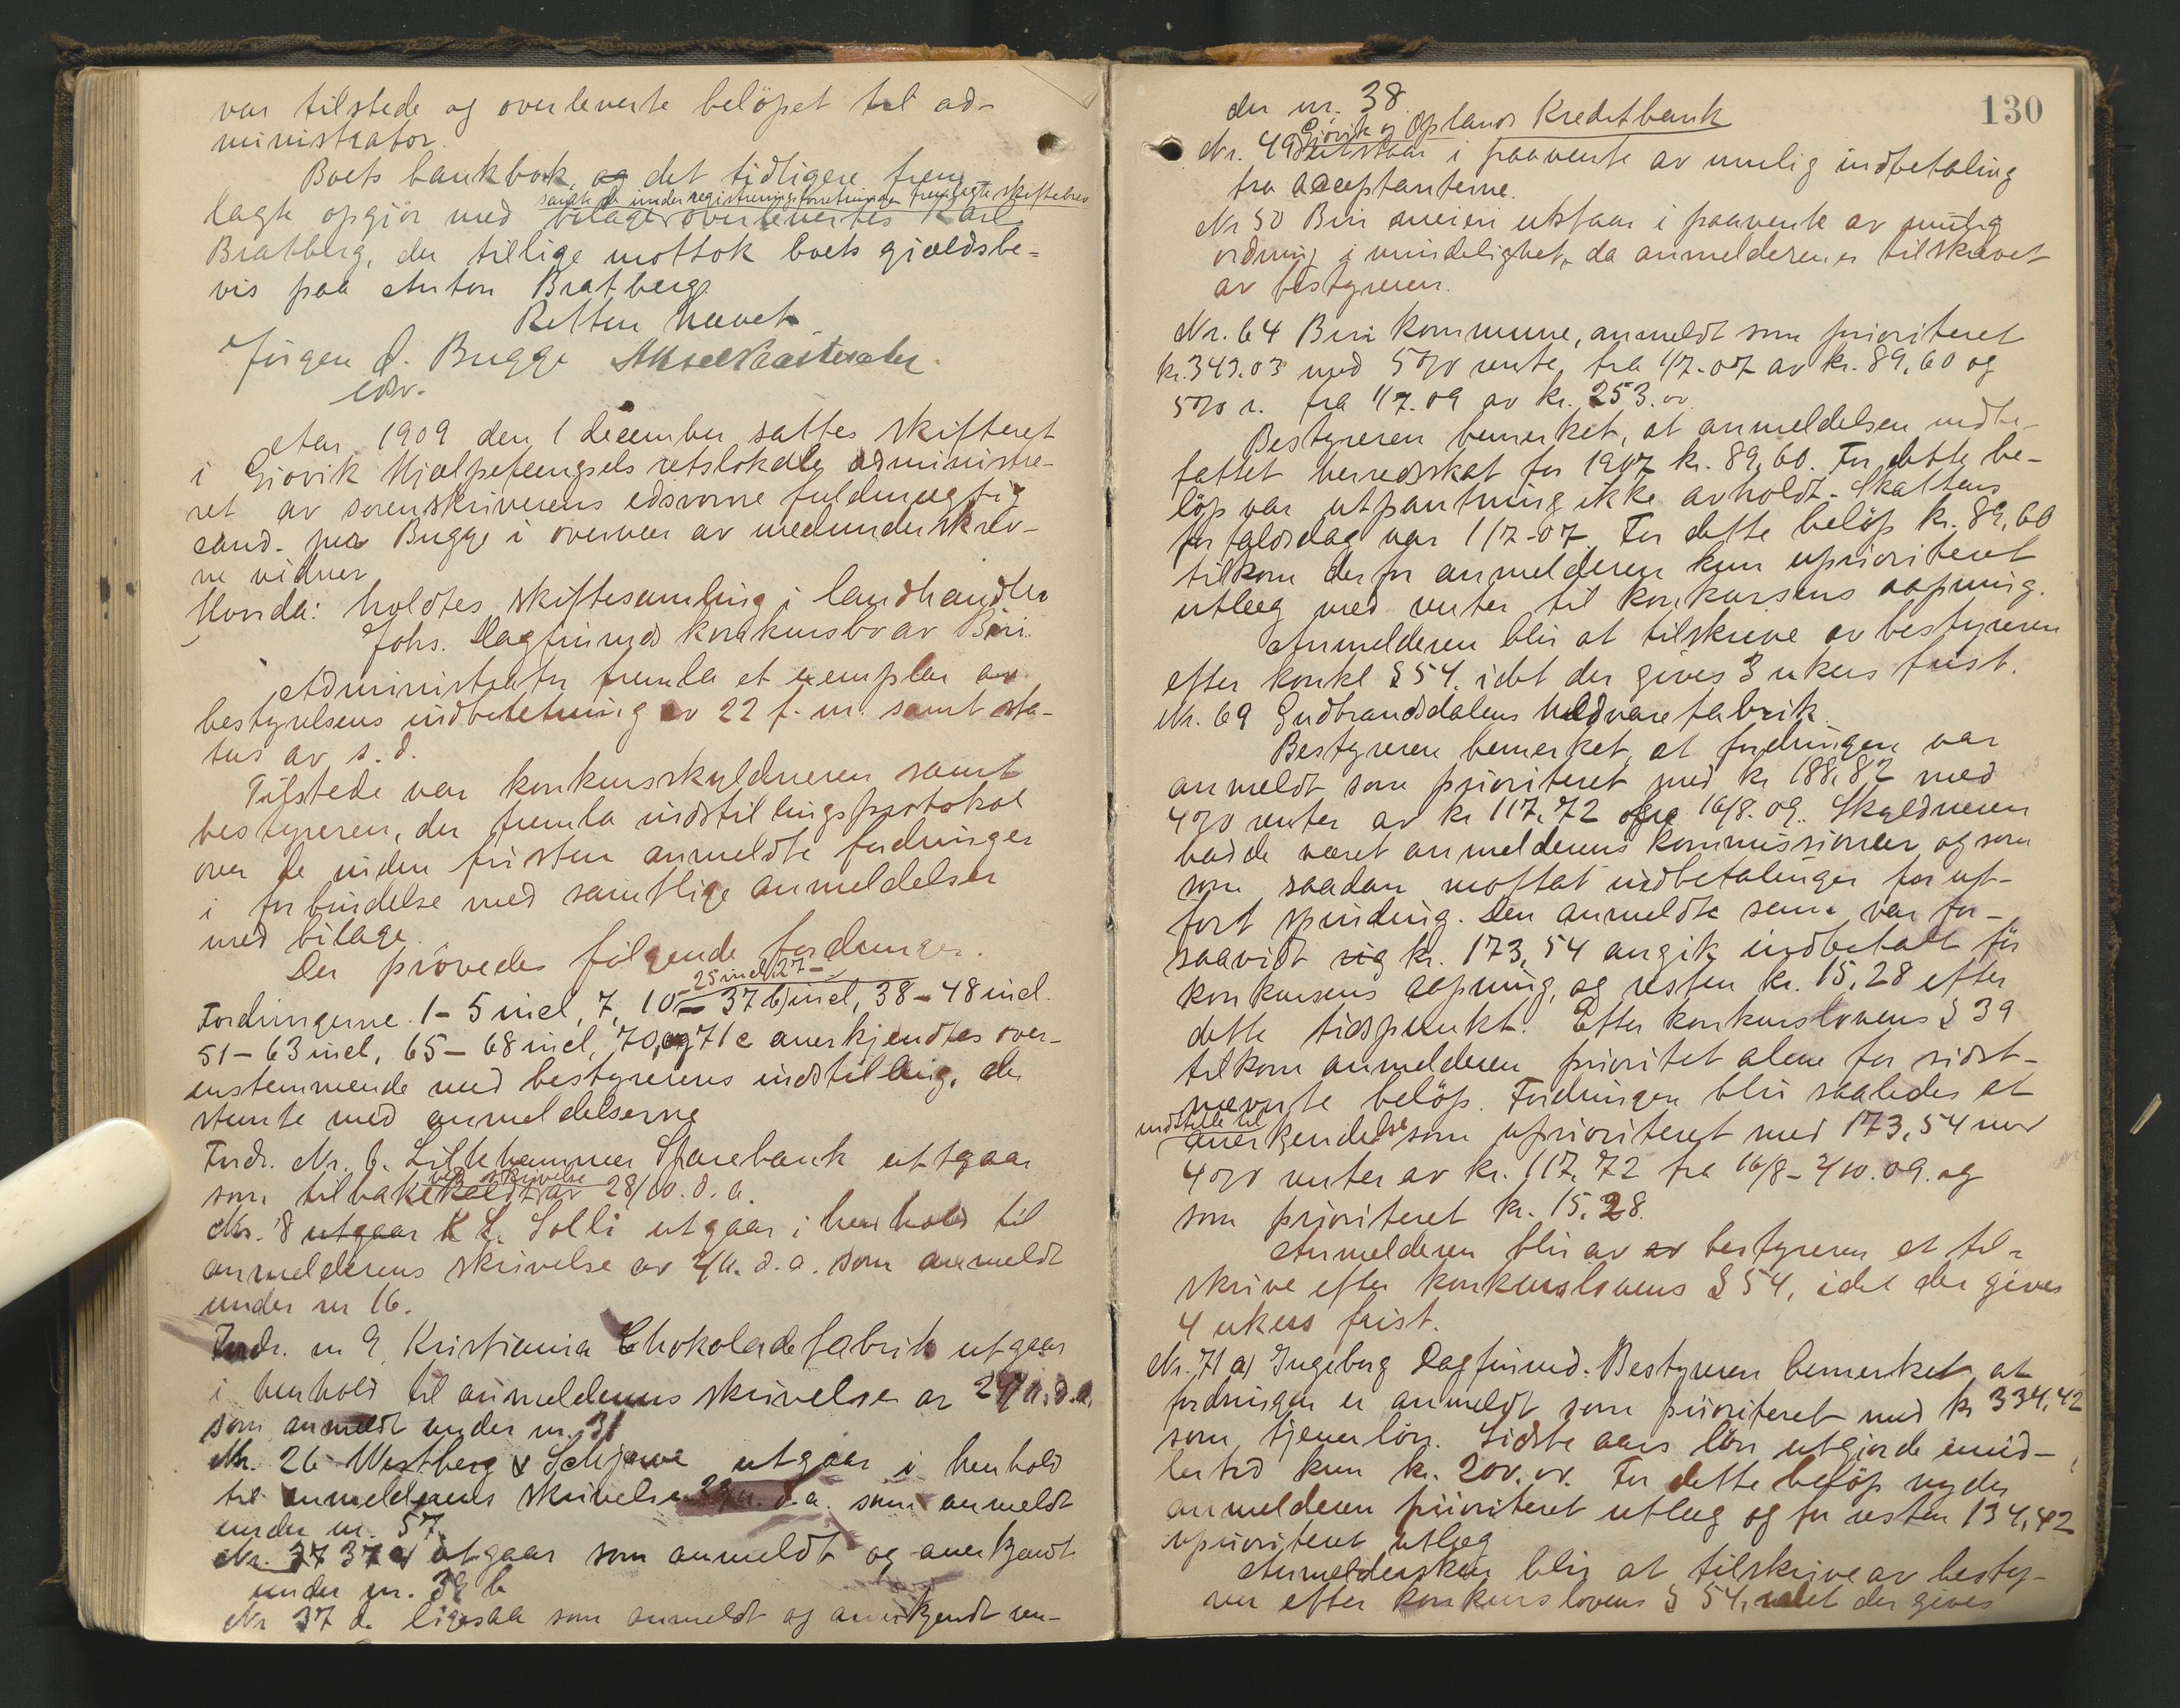 var tilstede og overleverte beløpet til ad-
ministrator.
Boets bankbok, og det tidligere frem-
samt de under registreringsforretningen fremlagte skiftebrev
lagte opgjør med bilager overlevertes Karl
Bratberg, der tillige mottok boets gjældsbe-
vis paa Anton Bratberg.
Retten hævet.
Jørgen J. Bugge
edsv.
Aar 1909 den 1 december sattes skifteret
i Gjøvik Hjælpefængsels retslokale administre-
ret av sorenskriverens edsvorne fuldmægtig
cand. jur Bugge i overvær av medunderskrev-
ne vidner
Hvorda: holdtes skiftesamling i landhandler
Johs. Dagfinruds konkursbo av Biri.
Administrator fremla et exemplar av
bestyrelsens indberetning av 22 f. m. samt sta-
tus av s. d.
Tilstede var konkursskyldneren samt
bestyreren, der fremla indstillingsprotokol
over de inden fristen anmeldte fordringer
i forbindelse med samtlige anmeldelser
med bilage.
Der prøvedes følgende fordringer.
25 incl, 27-
Fordringerne 1-5 incl, 7, 10 - 37 b) incl, 38-48 incl.
51-63 incl, 65-68 incl, 70, og 71 c anerkjendtes over-
ensstemmende med bestyrerens indstilling, der
stemte med anmeldelserne
Fordr. Nr. 6. Lillehammer Sparebank utgaar
ved skrivelse
som tilbakekaldt av 28/10. d. a.
Nr. 8 utgaar K L. Solli utgaar i henhold til
anmelderens skrivelse av 2/11. d. a. som anmeldt
under nr 16.
Fordr. nr 9. Kristiania Chokoladefabrik utgaar
i henhold til anmelderens skrivelse av 29/11. d. a.
som anmeldt under nr. 31
Nr. 26 Westberg & Schjøwe utgaar i henhold
til anmelderens skrivelse 29/11. d. a. som anmeldt
under nr. 57.
Nr. 37 a) utgaar som anmeldt og anerkjendt
under nr. 39 b
Nr 37 d. ligesaa som anmeldt og anerkjendt un-
130
der nr. 38.
Gjøvik og Oplands Kreditbank
Nr. 49 utstaar i paavente av mulig indbetaling
fra acceptanterne.
Nr 50 Biri meieri utstaar i paavente av mulig
ordning i mindelighet, da anmelderen er tilskrevet
av bestyreren.
Nr. 64 Biri kommune, anmeldt som prioriteret
kr. 343.03 med 5% rente, fra 1/7-07 av kr. 89,60 og
5% r. fra 1/7-09 av kr. 253.00
Bestyreren bemerket, at anmeldelsen indbe-
fattet herredsskat for 1907 kr. 89,60. For dette be-
løp var utpantning ikke avholdt. Skattens
forfaldsdag var 1/7-07 For dette beløp kr. 89,60
tilkom derfor anmelderen kun uprioriteret
utlæg med renter til konkursens aapning.
Anmelderen blir at tilskrive av bestyreren
efter konkl § 54. idet der gives 3 ukers frist.
Nr. 69 Gudbrandsdalens Uldvarefabrik.
Bestyreren bemerket, at fordringen var
anmeldt som prioriteret med kr 188,82 med
4% renter av kr 117,72 fra 16/8. 09. Skyldneren
hadde været anmelderens kommissionær og som
som saadan mottat indbetalinger for ut-
ført spinding. Den anmeldte sum var for-
saavidt kr. 173,54 angik indbetalt før
konkursens aapning, og resten kr. 15,28 efter
dette tidspunkt. Efter konkurslovens § 39
tilkom anmelderen prioritet alene for sidst-
nævnte beløp. Fordringen blir saaledes at
indstille til
anerkjendelse som uprioriteret med 173,54 med
4% renter av kr. 117,72 fra 16/8 - 2/10. 09. og
som prioriteret kr. 15,28.
Anmelderen blir av av bestyreren at til-
skrive efter konkurslovens § 54, idet der gives
4 ukers frist.
Nr. 71 a) Ingeborg Dagfinrud. Bestyreren bemerket at
fordringen er anmeldt som prioriteret med kr 334,42
som tjenerløn. Sidste aars løn utgjorde imid-
lertid kun kr. 200,00. For dette beløp nyder
anmelderen prioriteret utlæg og for resten 134,42
uprioriteret utlæg
Anmeldersken blir at tilskrive av besty-
rer efter konkurslovens § 54, idet der gives